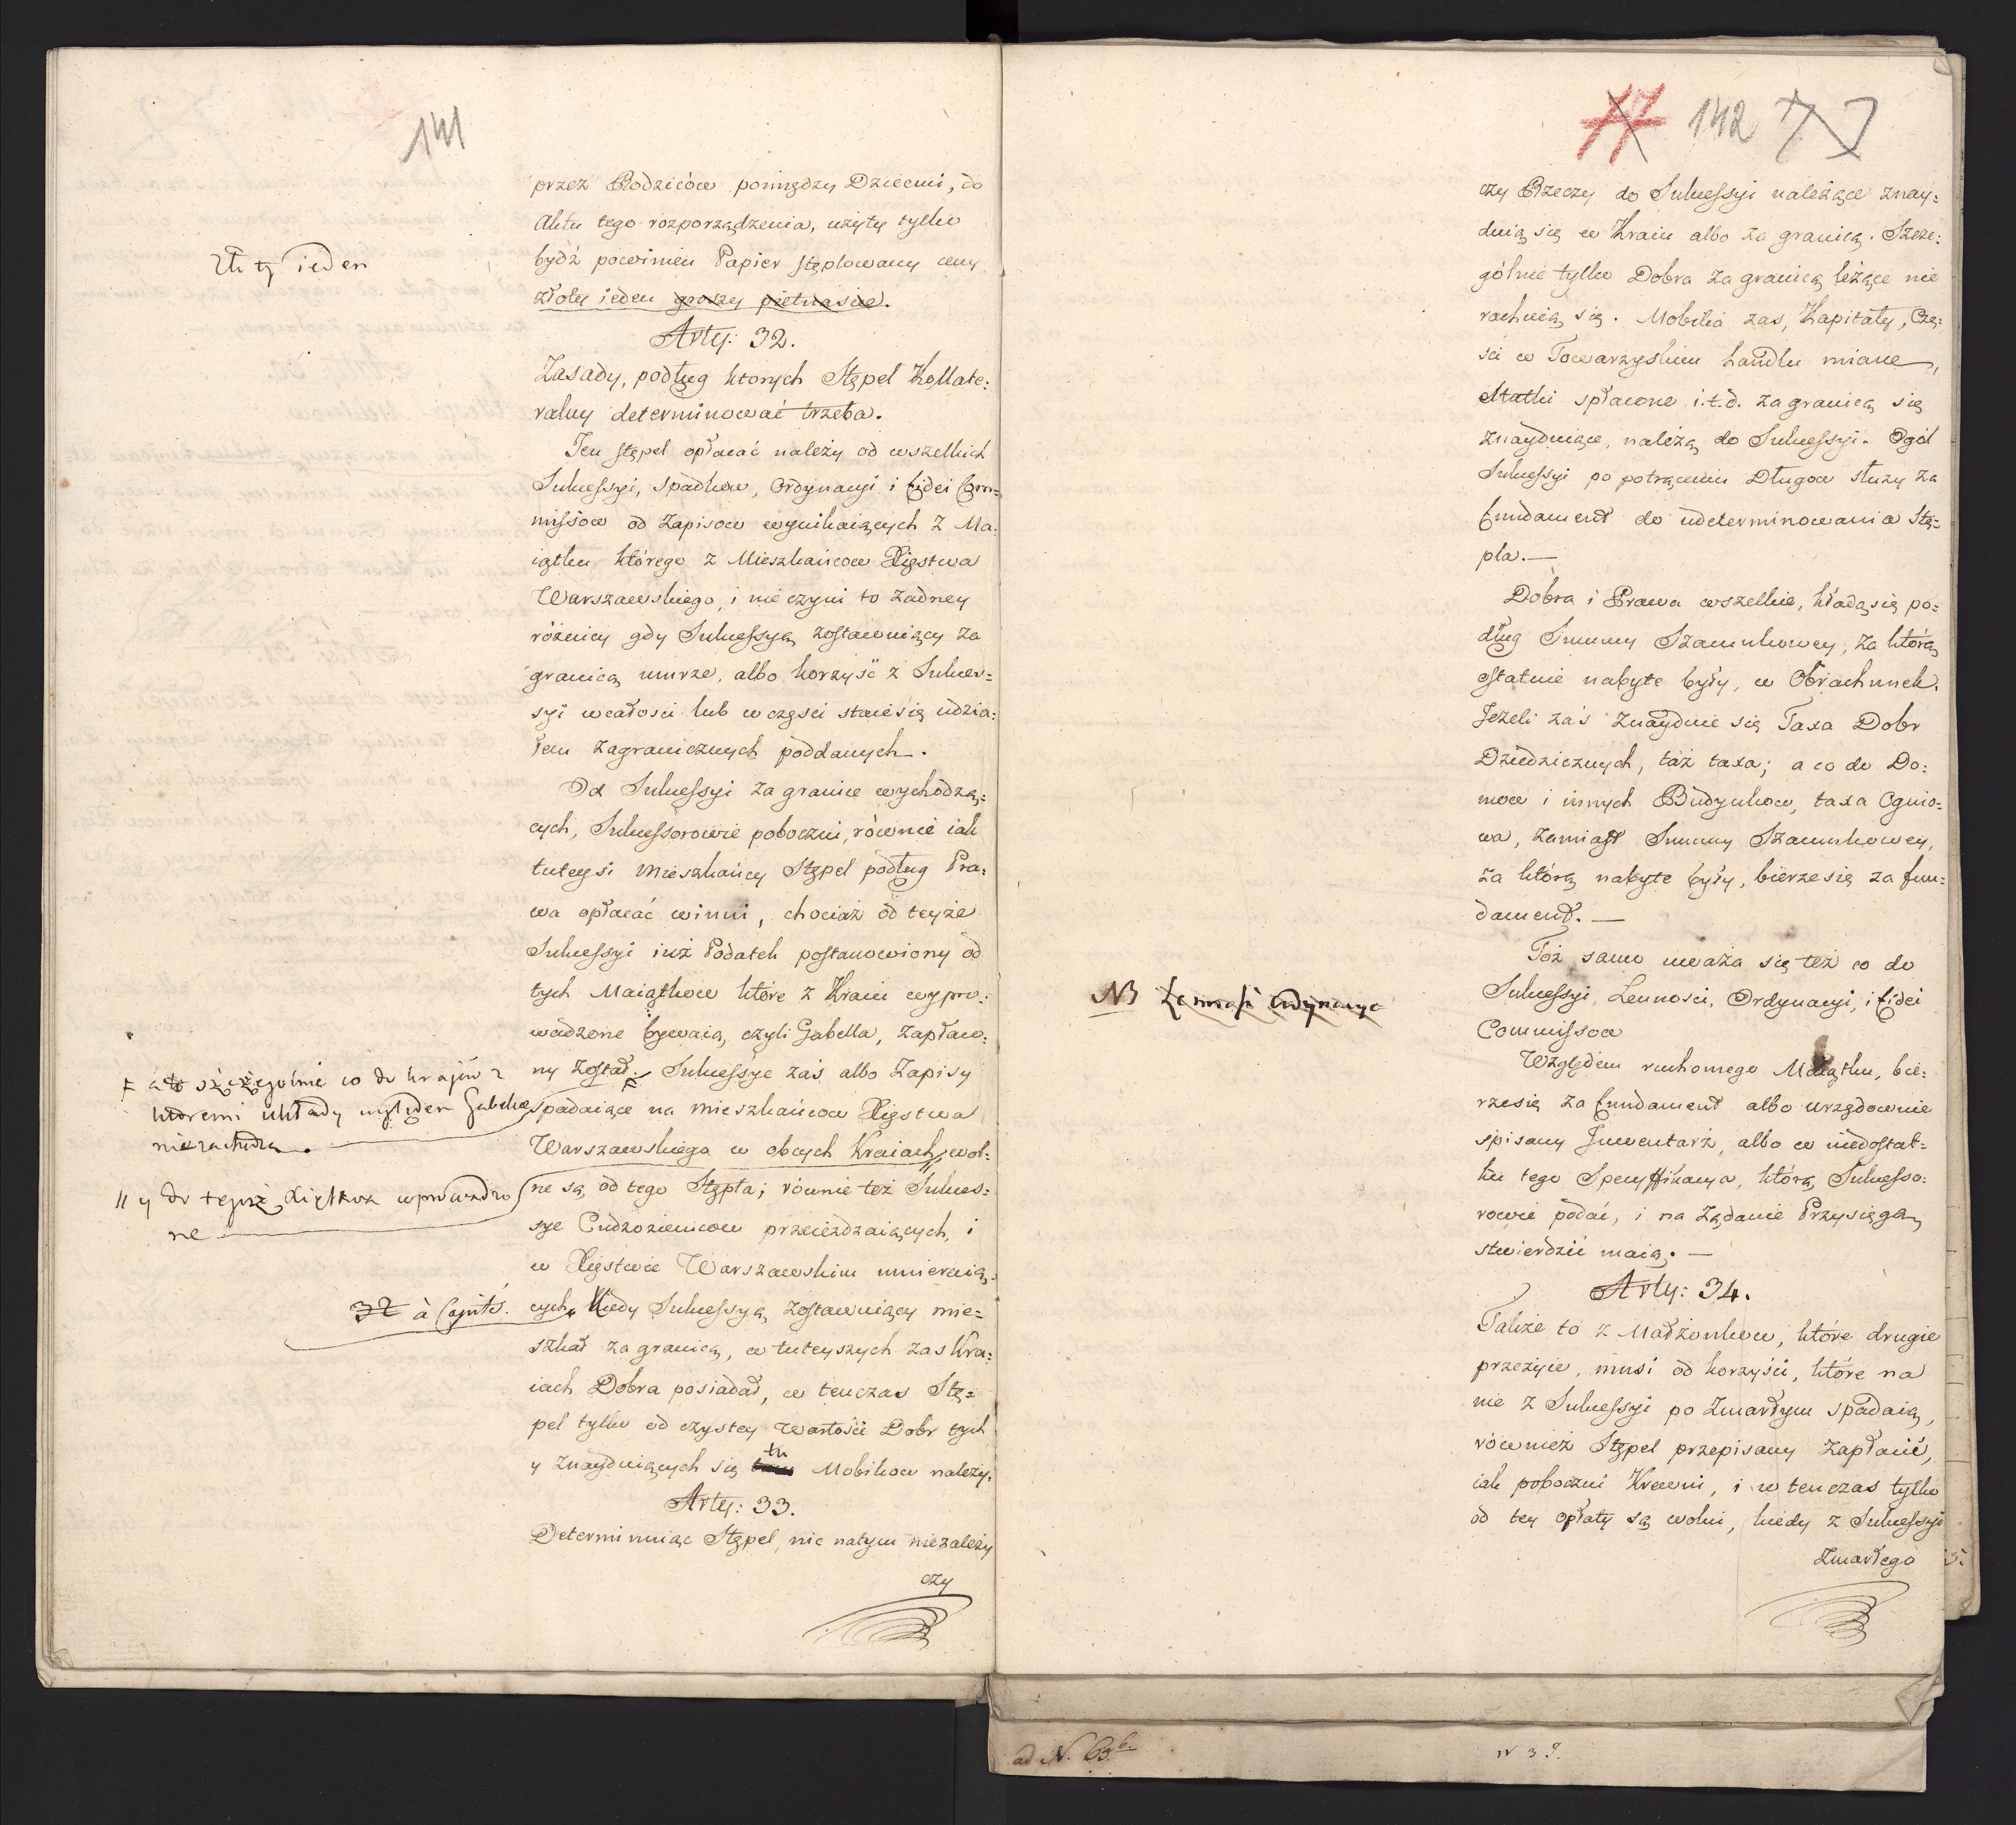 141
przez Rodziców pomiędzy Dziećmi, do
Aktu tego rozporządzenia, użyty tylko
bydź powinien Papier stęplowany ceny
złoty ieden groszy pietnascie.
Złoty ieden
Arty: 32.
Zasady, podług ktorych Stępel Kollate:
ralny determinować trzeba.
Ten stępel opłacać należy od wszelkich
Sukcessyi, spadkow, Ordynacyi i Fidei Com=
missow od Zapisow wynikaiących z Ma:
iątku którego z Mieszkańcow Xięstwa
Warszawskiego, i nie czyni to żadney
różnicy gdy Sukcessyą zostawuiący za
granicą umrze, albo korzyść z Sukces=
syi w całosci lub w częsci stanie się udzia:
łem zagranicznych poddanych.
Od Sukcessyi za granice wychodzą:
cych, Sukcessorowie poboczni, równie iak
tuteysi Mieszkańcy Stępel podług Pra:
wa opłacać winni, chociaż od teyże
Sukcessyi iuż Podatek postanowiony od
tych Maiątkow które z Kraiu wypro:
wadzone bywaią, czyli Gabella, zapłaco:
ny został. Sukcessye zaś albo Zapisy
spadaiące na mieszkańcow Xięstwa
Warszawskiego w obcych Kraiach, wol:
ne są od tego Stępla; równie też Sukces=
sye Cudzoziemcow przeieżdzaiących, i
w Xięstwie Warszawskim umieraią=
cych. Kiedy Sukcessyą zostawuiący mie=
szkał za granicą, w tuteyszych zas Kra:
iach Dobra posiadał, w tenczas Stę=
pel tylko od czystey Wartości Dobr tych
y znayduiących się tu Mobiliow należy.
F a to szczegolnie co do kraiów z
ktoremi układy względem Gabelli
niezachodzą.
// y do teyże Xięstwa wprowadzo
ne
32 à Capite.
Arty: 33.
Determinuiąc Stępel, nic natym niezależy
czy
17 142
czy Rzeczy do Sukcessyi należące znay:
duią się w Kraiu albo za granicą. Szcze:
gólnie tylko Dobra za granicą leżące nie
rachuią się. Mobilia zas, Kapitały, Czę:
sci w Towarzyskim handlu miane,
Statki spłacone i.t.d. za granicą się
znayduiące, należą do Sukcessyi. Ogół
Sukcessyi po potrąceniu Długow służy za
fundament do udeterminowania Stę=
pla.—
Dobra i Prawa wszelkie, kładą się po:
dług Summy Szacunkowey, za którą
ostatnie nabyte były, w Obrachunek.
Jeżeli zaś znayduie się Taxa Dobr
Dziedzicznych, táż taxa; a co do Do:
mow i innych Budynkow, taxa Ognio:
wa, zamiast Summy Szacunkowey,
za którą nabyte były, bierze się za fun=
dament.—
Toż samo uważa się też co do
Sukcessyi, Lennosci, Ordynacyi, i Fidei
Commissow
NB
Względem ruchomego Maiątku, bie:
rze się za fundament albo urzędownie
spisany Inwentarz, albo w niedostat=
ku tego Specyffikacya, którą Sukcesso:
rowie podać, i na żądanie Przysięgą
stwierdzić maią.—
Arty: 34.
Takze to z Małżonkow, które drugie
przeżyie, musi od korzyści, które na
nie z Sukcessyi po Zmarłym spadaią,
również Stępel przepisany zapłacić,
iak poboczni Krewni, i w tenczas tylko
od tey opłaty są wolni, kiedy z Sukcessyi
Zmarłego
ad N. 63.b.
N 39.